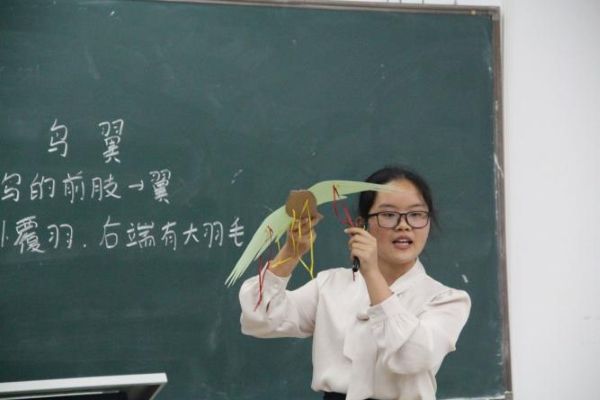 鸟翼
鸟的前肢→翼
外覆羽、右端有大羽毛